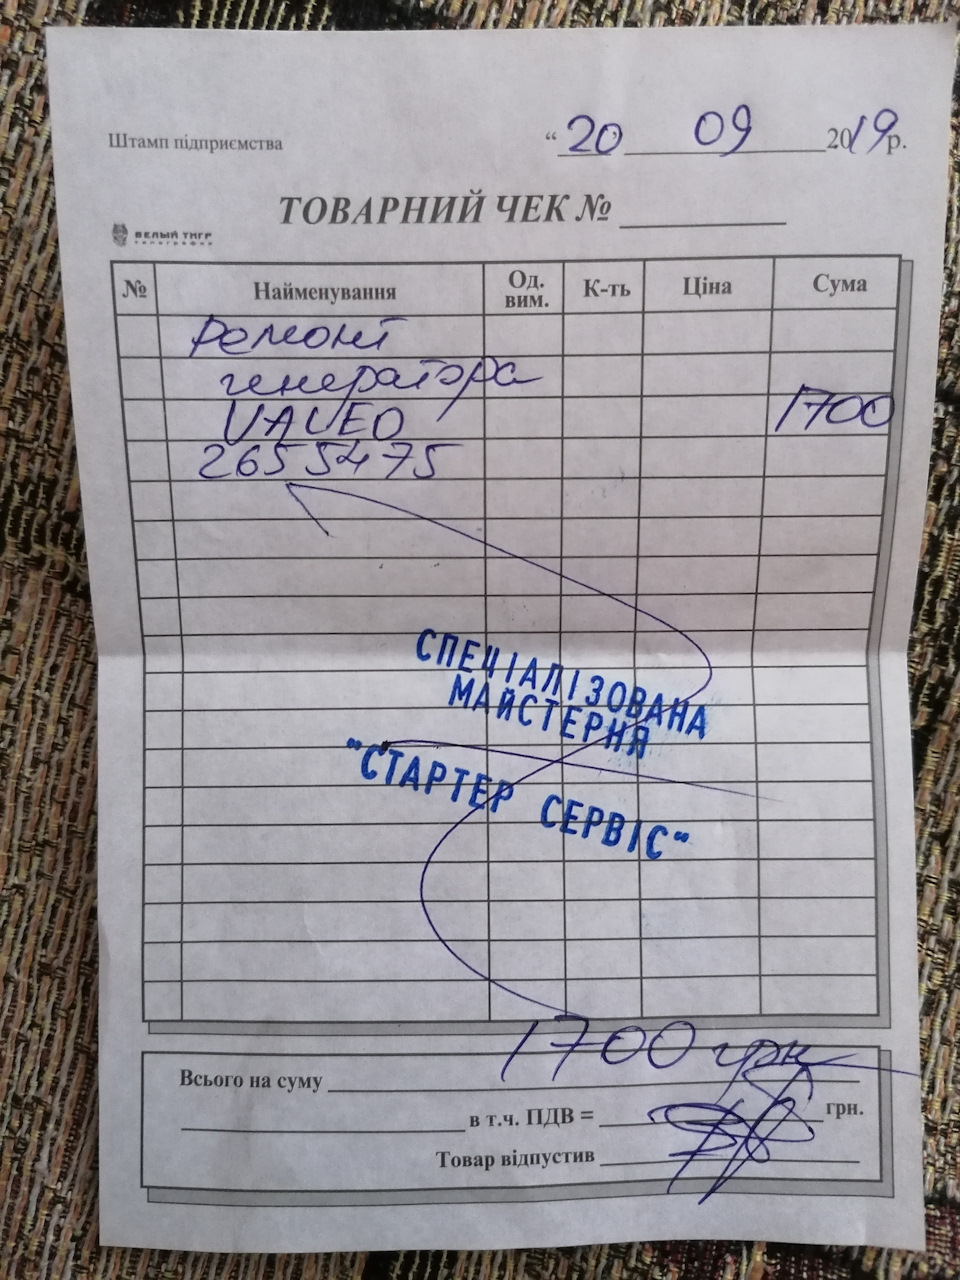 Штамп підприємства
“ 20 09 2019 р.
ТОВАРНИЙ ЧЕК №
БЕЛЫЙ ТИГР
типография
№ Найменування Од. вим. К-ть Ціна Сума
Ремонт
генератора
VALEO 1700
2655475
СПЕЦІАЛІЗОВАНА
МАЙСТЕРНЯ
"СТАРТЕР СЕРВІС"
Всього на суму 1700 грн
в т.ч. ПДВ = грн.
Товар відпустив